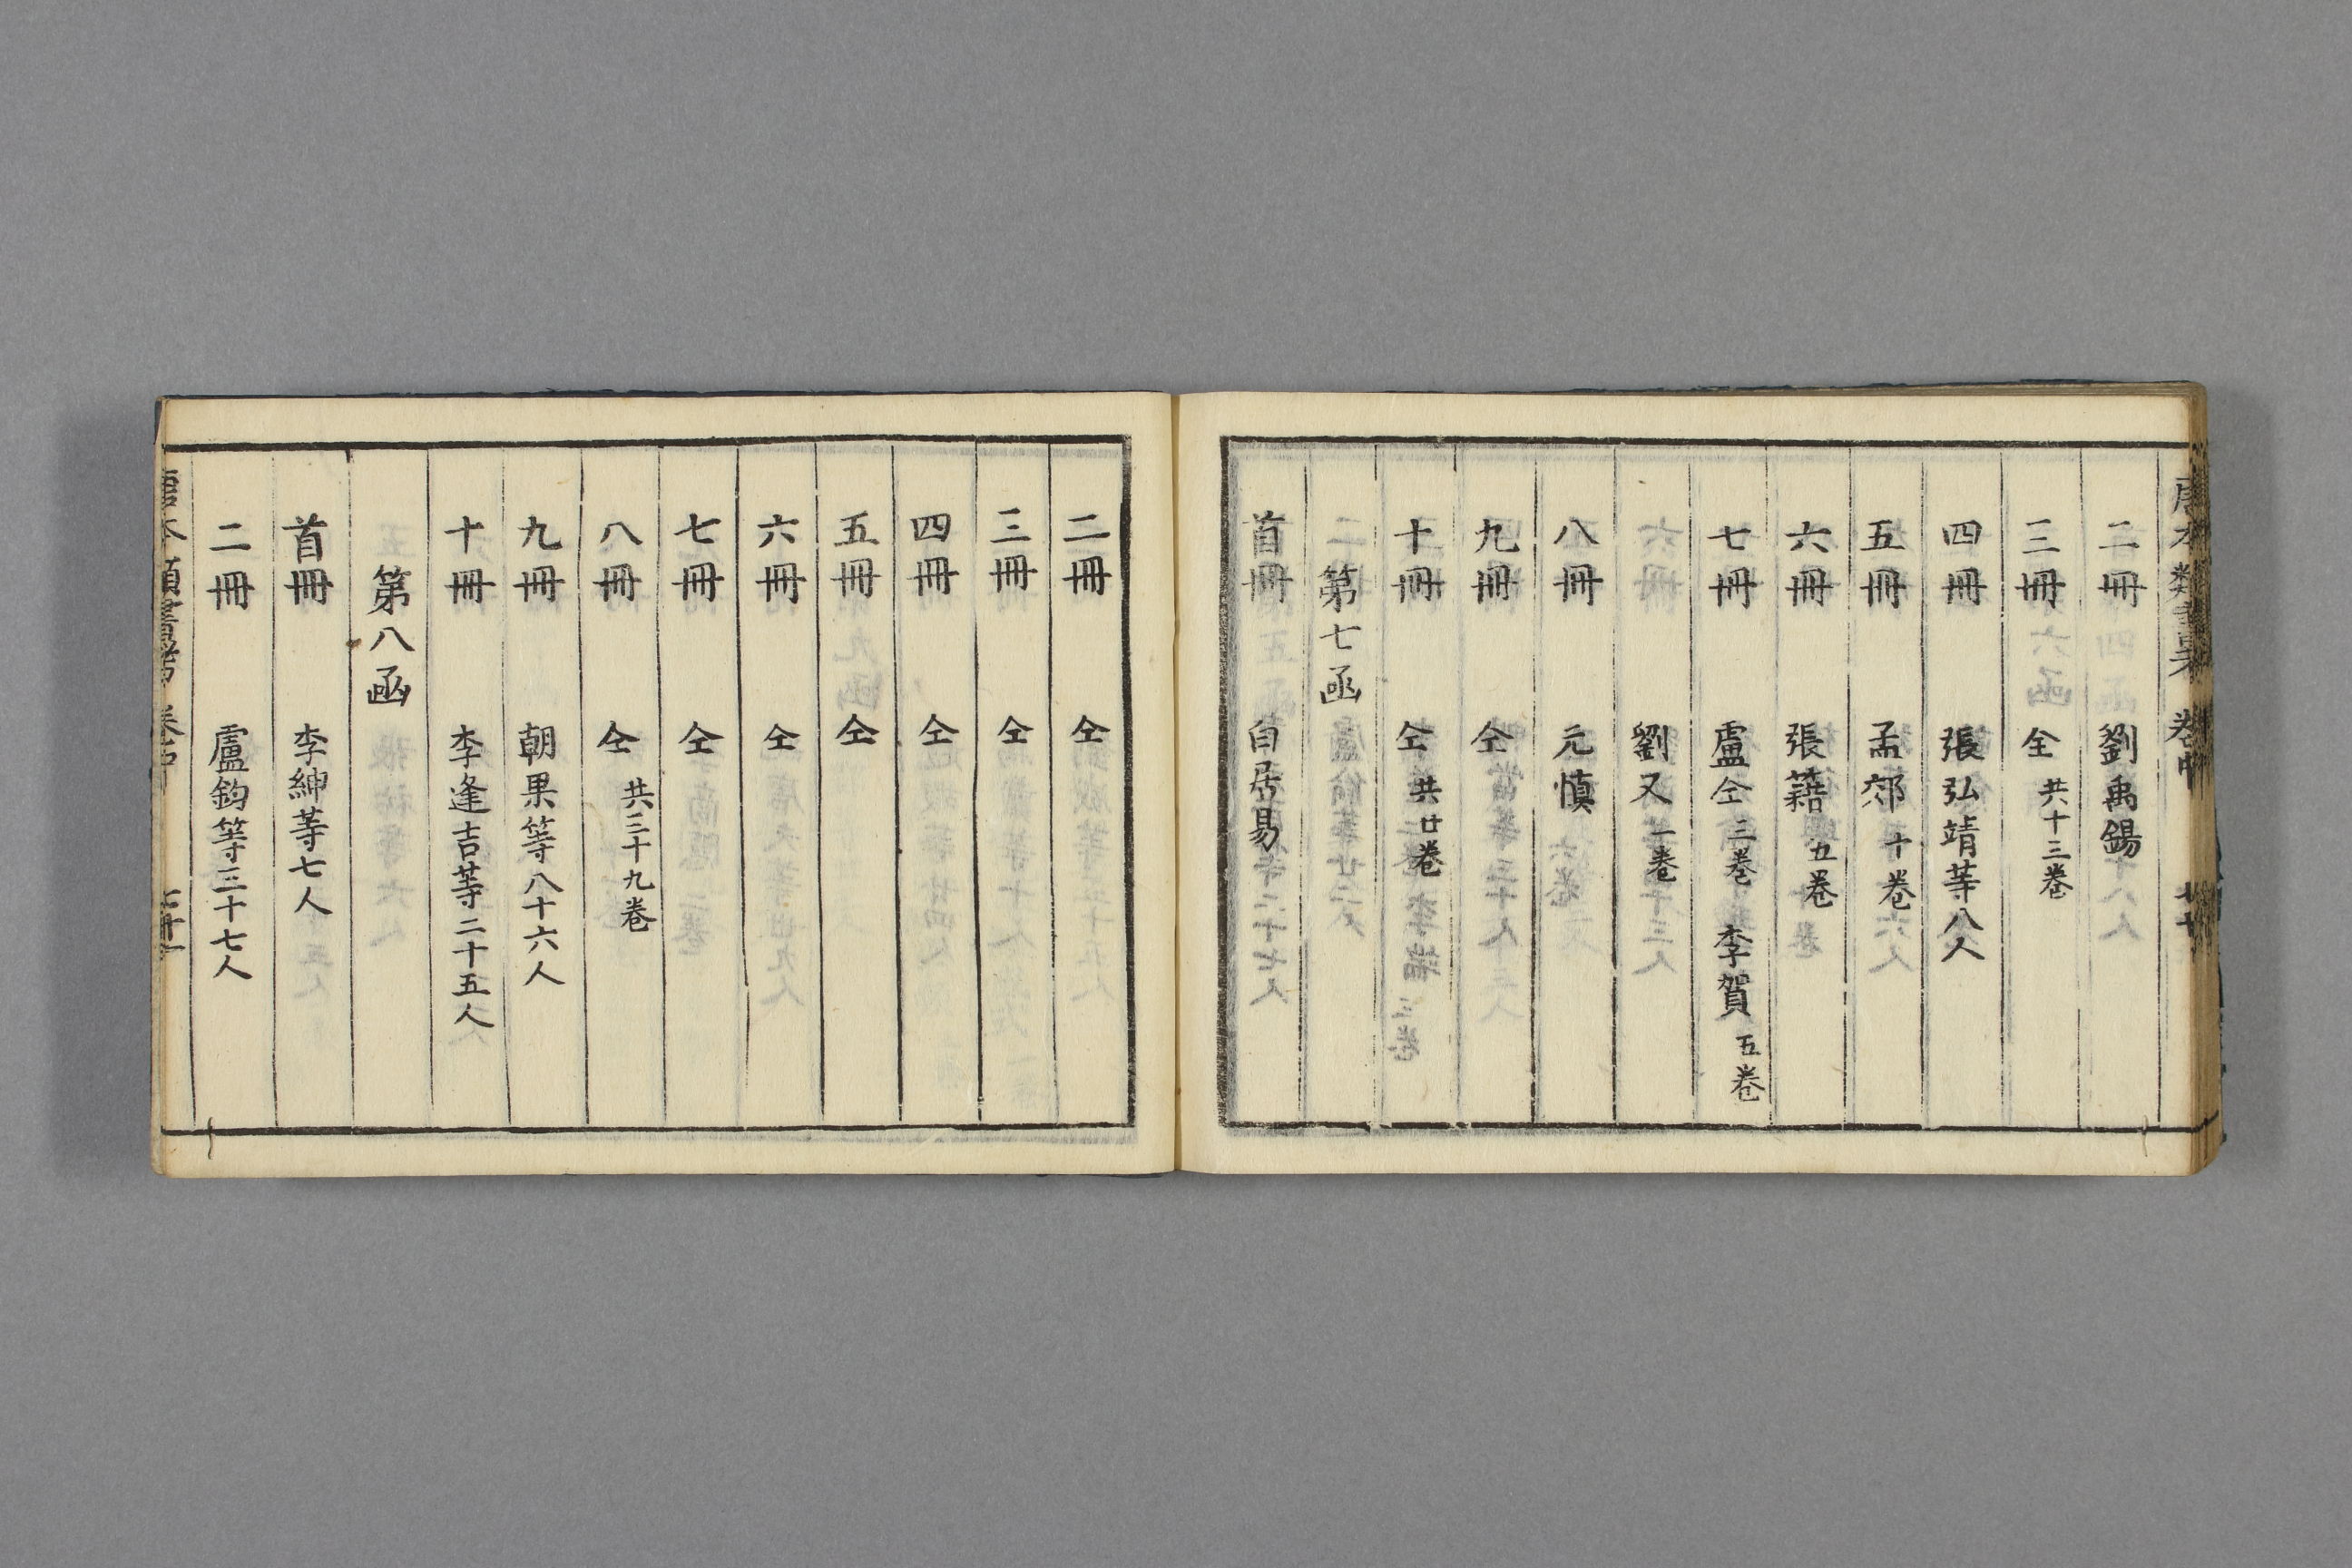 唐本類書考 卷中
二冊 劉禹錫
三冊 仝 共十三卷
四冊 張弘靖等八人
五冊 孟郊 十卷
六冊 張籍 五卷
七冊 盧仝 三卷 李賀 五卷
劉叉 一卷
八冊 元慎
九冊 仝
十冊 仝 共廿卷
第七函
首冊 白居易
二冊 仝
三冊 仝
四冊 仝
五冊 仝
六冊 仝
七冊 仝
八冊 仝 共三十九卷
九冊 朝果等八十六人
十冊 李逢吉等二十五人
第八函
首冊 李紳等七人
二冊 盧鈞等三十七人
唐本類書考 卷中